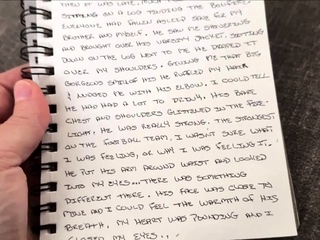 THEN IT WAS LATE,
SITTING ON A LOG TENDING THE BONFIRE.
EVERYONE HAD FALLEN ASLEEP SAVE FOR MY
BROTHER AND MYSELF. HE SAW ME SHIVERING
AND BROUGHT OVER HIS VARSITY JACKET. SITTING
DOWN ON THE LOG NEXT TO ME HE DRAPED IT
OVER MY SHOULDERS. GIVING ME THAT BIG
GORGEOUS SMILE OF HIS HE RUFFLED MY HAIR
& NUDGED ME WITH HIS ELBOW. I COULD TELL
HE HAD HAD A LOT TO DRINK. HIS BARE
CHEST AND SHOULDERS GLISTENED IN THE FIRE-
LIGHT. HE WAS REALLY STRONG. THE STRONGEST
ON THE FOOTBALL TEAM. I WASN'T SURE WHAT
I WAS FEELING, OR WHY I WAS FEELING IT..
HE PUT HIS ARM AROUND WAIST AND LOOKED
INTO MY EYES...THERE WAS SOMETHING
DIFFERENT THERE. HIS FACE WAS CLOSE TO
MINE AND I COULD FEEL THE WARMTH OF HIS
BREATH. MY HEART WAS POUNDING AND I
CLOSED MY EYES...